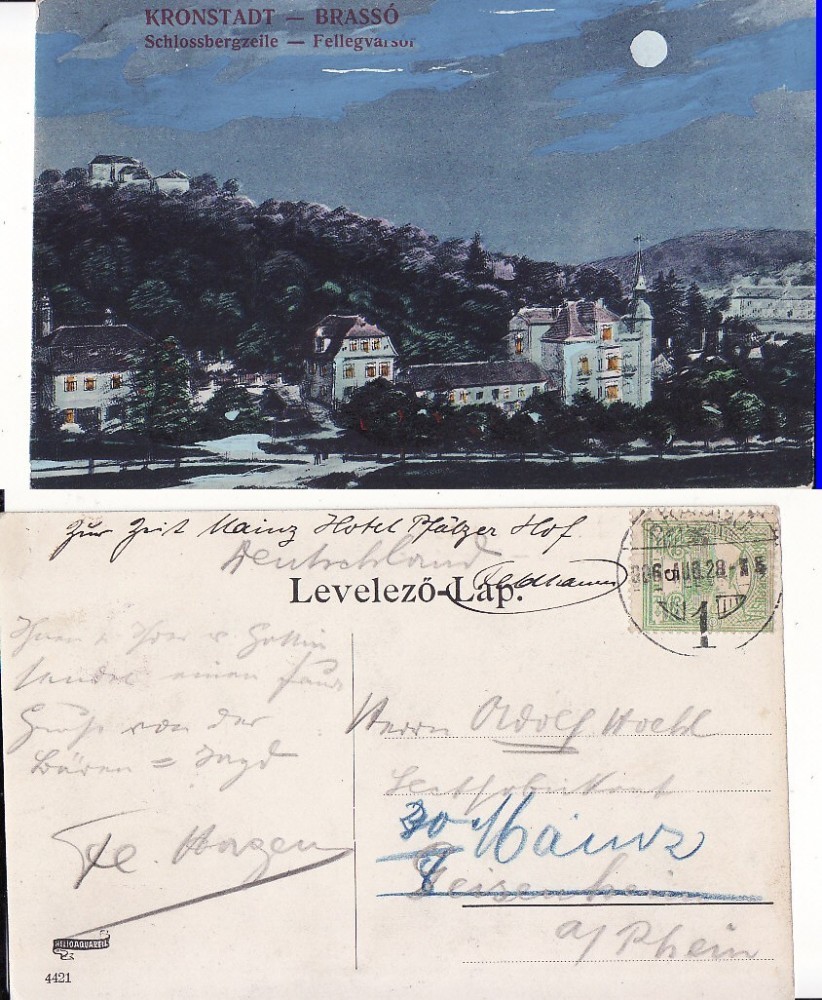 KRONSTADT — BRASSÓ
Schlossbergzeile — Fellegvársor
Zur Zeit Mainz Hotel Pfälzer Hof.
Deutschland
Levelező-Lap.
906 AUG 28
1
Ihnen & Ihrer v. Gattin
sendet einen
Gruß von der
Bären = Jagd
Fr. Horgen
Herrn Adolf Hoehl
Sectfabrikant
Mainz
Geisenheim
a/ Rhein
HELIOAQUARELL
4421